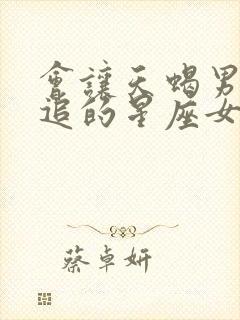 會讓天蝎男
追的星座女
蔡卓妍